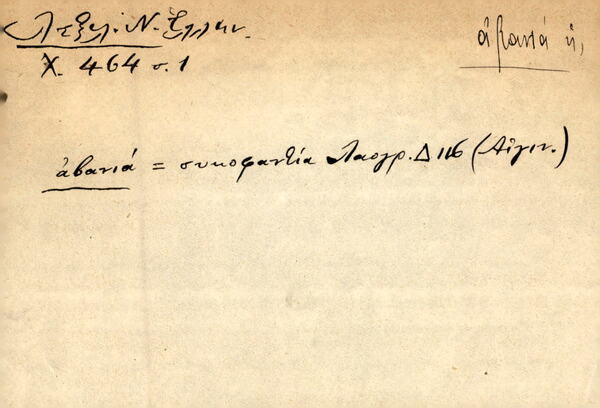 Λεξικ. Ν. Ἑλλην.
Χ. 464 σ. 1
ἀβανιά ἡ,
ἀβανιά = συκοφαντία Λαογρ. Δ 116 (Αἴγιν.)